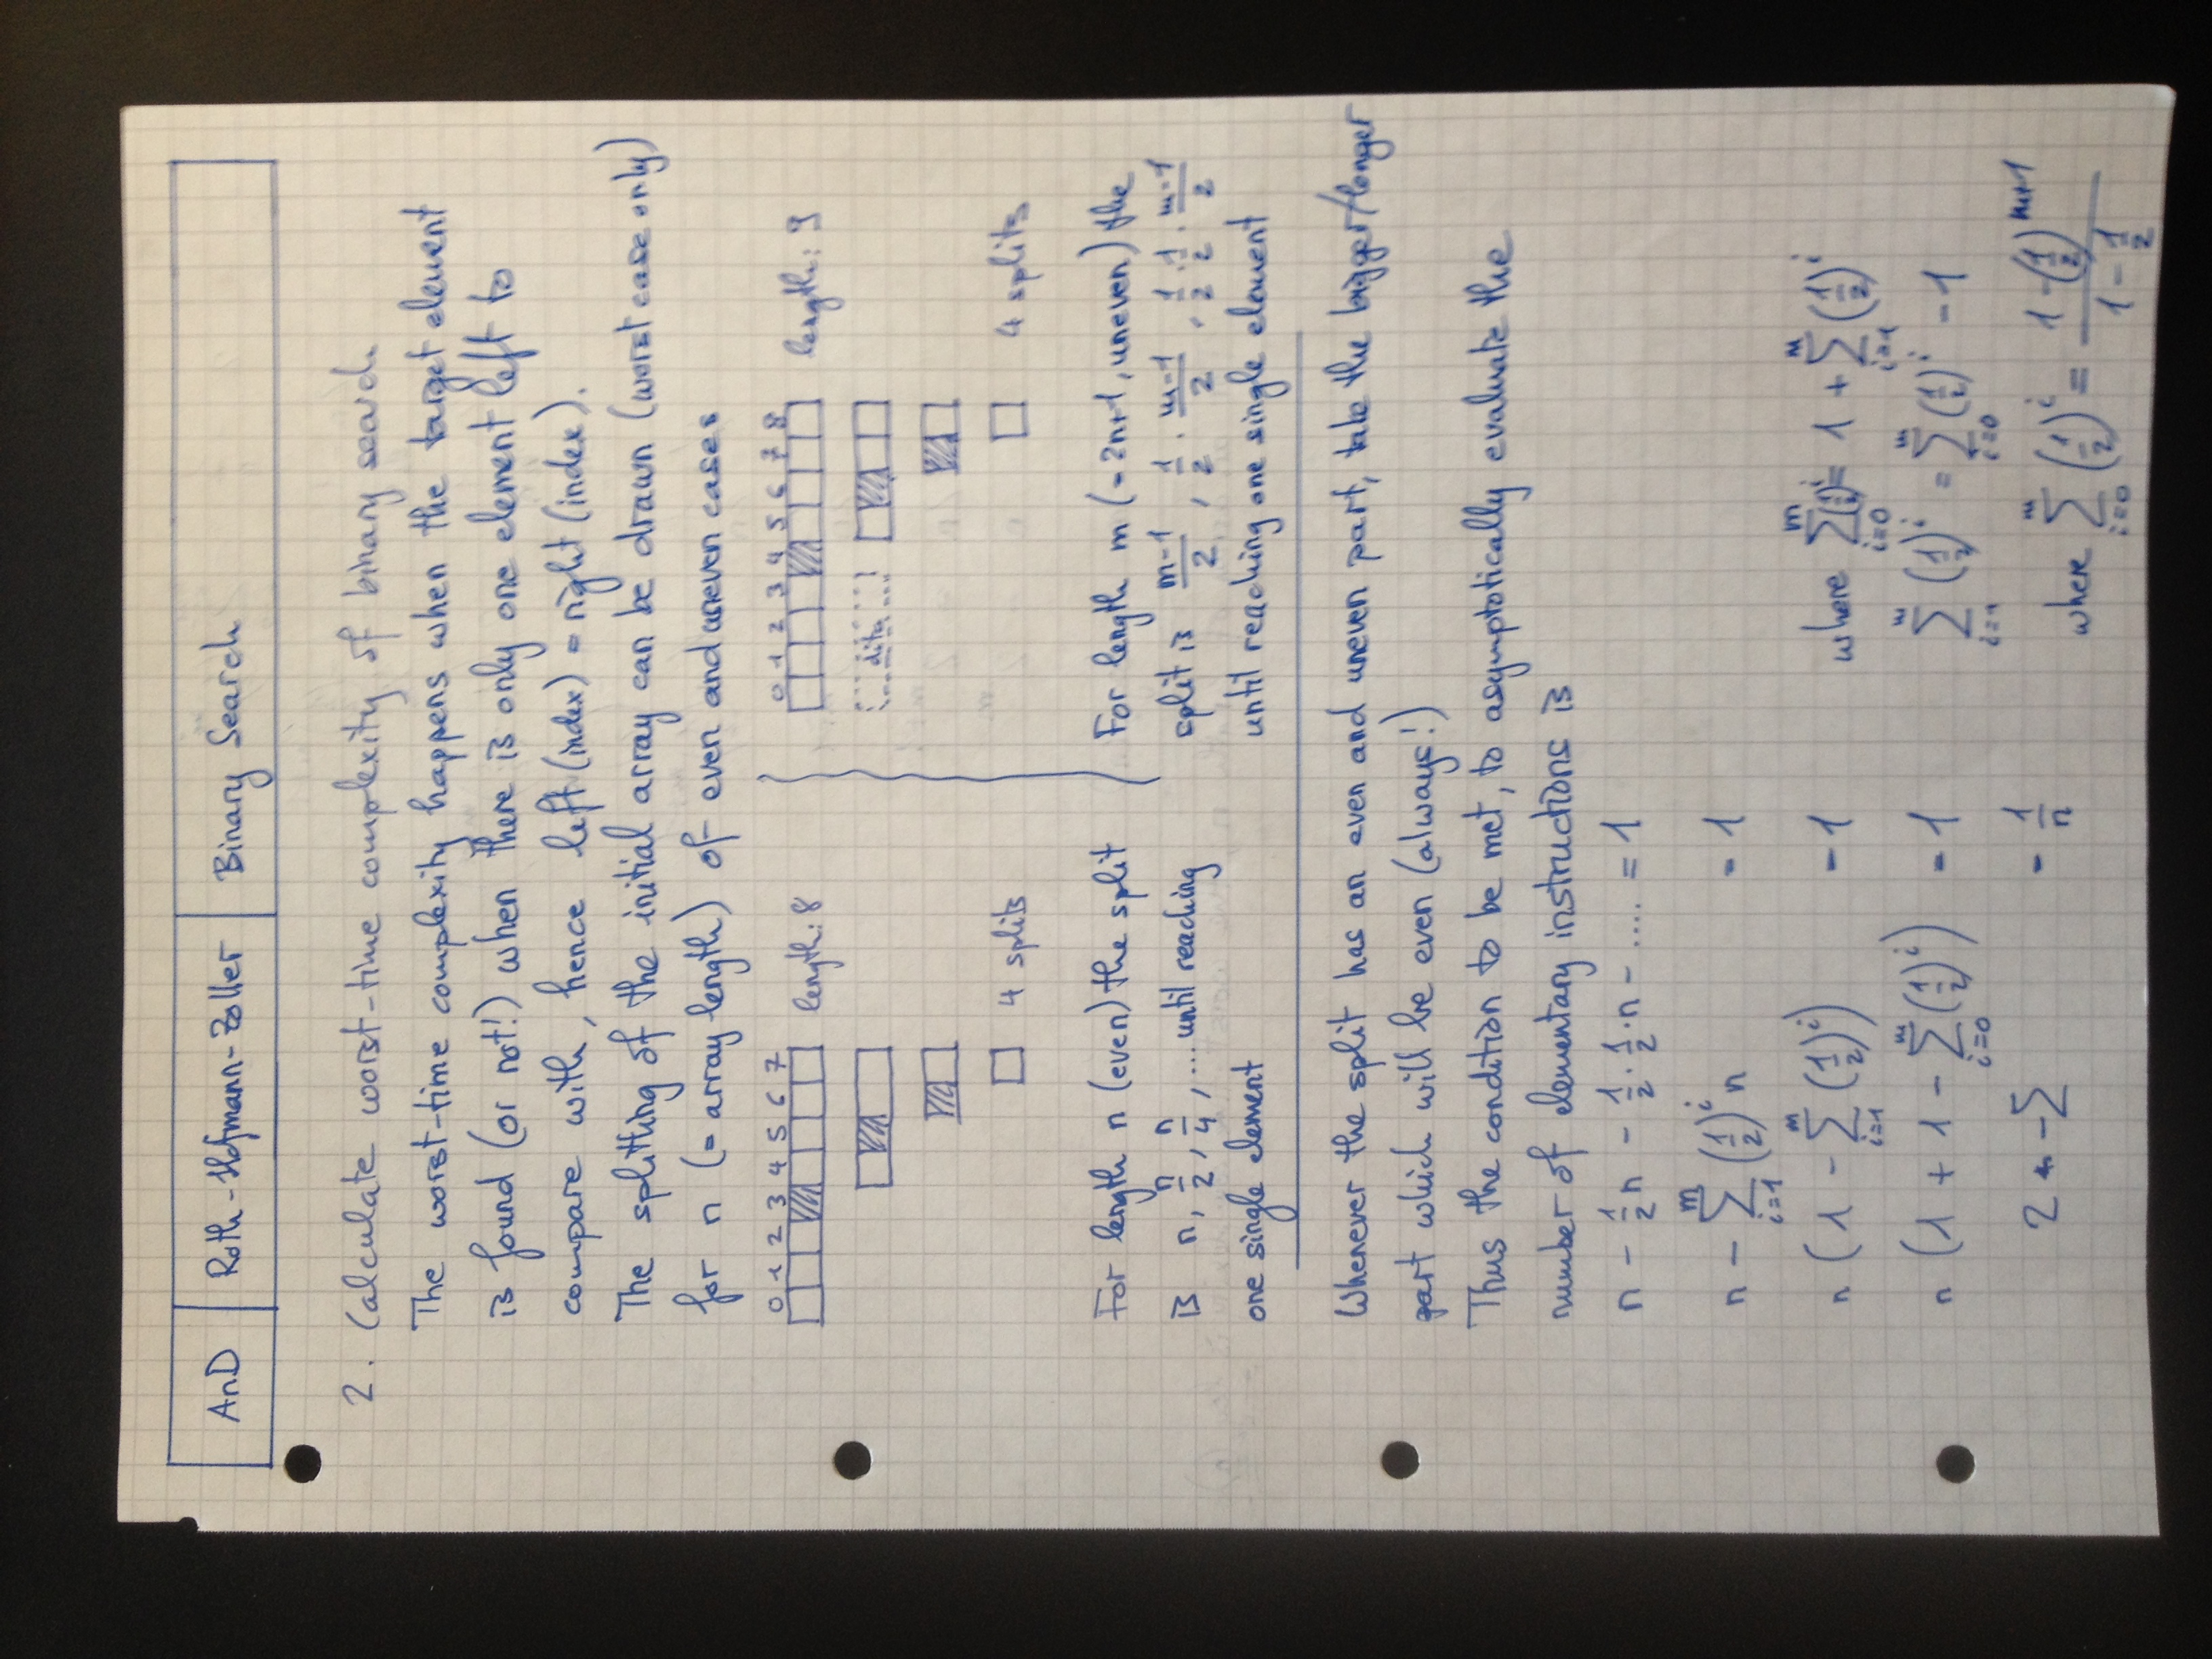 AnD | Roth-Hofmann-Zoller | Binary Search
2. Calculate worst-time complexity of binary search
The worst-time complexity happens when the target element
is found (or not!) when there is only one element left to
compare with, hence left (index) = right (index).
The splitting of the initial array can be drawn (worst case only)
for n (= array length) of even and uneven cases
0 1 2 3 4 5 6 7 length: 8
4 splits
0 1 2 3 4 5 6 7 8 length: 9
dito
4 splits
For length n (even) the split
is n, n/2, n/4, ... until reaching
one single element
For length m (= 2n+1, uneven) the
split is (m-1)/2, 1/2 · (m-1)/2, 1/2 · 1/2 · (m-1)/2
until reaching one single element
Whenever the split has an even and uneven part, take the bigger/longer
part which will be even (always!)
Thus the condition to be met, to asymptotically evaluate the
number of elementary instructions is
n - 1/2 n - 1/2 · 1/2 · n - .... = 1
n - Σ_{i=1}^{m} (1/2)^i n = 1
n (1 - Σ_{i=1}^{m} (1/2)^i) = 1 where Σ_{i=0}^{m} (1/2)^i = 1 + Σ_{i=1}^{m} (1/2)^i
n (1 + 1 - Σ_{i=0}^{m} (1/2)^i) = 1 Σ_{i=1}^{m} (1/2)^i = Σ_{i=0}^{m} (1/2)^i - 1
2 - Σ = 1/n where Σ_{i=0}^{m} (1/2)^i = (1 - (1/2)^{m+1}) / (1 - 1/2)